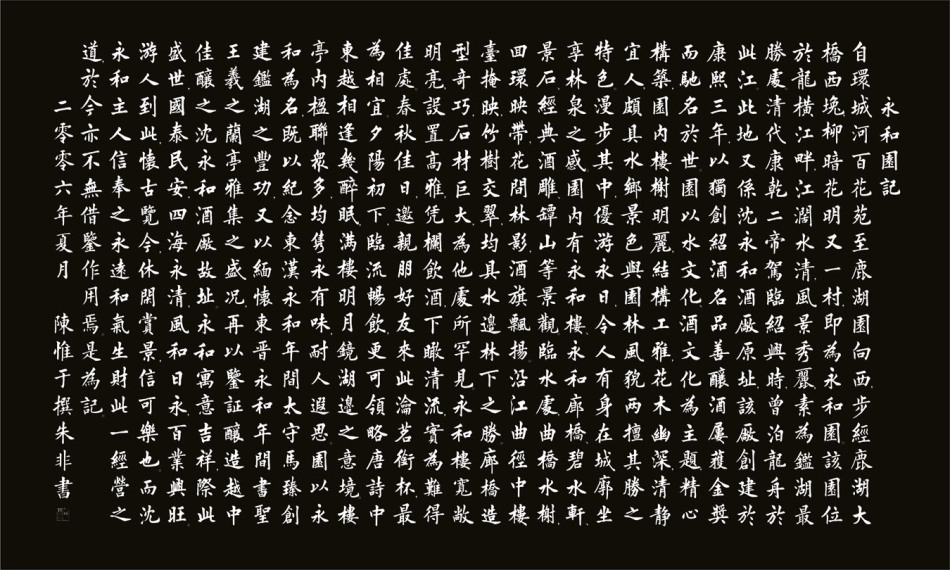 永和園記
自環城河百花苑至鹿湖園向西步經鹿湖大
橋西堍柳暗花明又一村即為永和園該園位
於龍橫江畔江闊水清風景秀麗素為鑑湖最
勝處清代康乾二帝駕臨紹興時曾泊龍舟於
此江此地又係沈永和酒廠原址該廠創建於
康熙三年以獨創紹酒名品善釀酒屢獲金獎
而馳名於世園以水文化酒文化為主題精心
構築園內樓榭明麗結構工雅花木幽深清靜
宜人頗具水鄉景色與園林風貌兩擅其勝之
特色漫步其中優游永日令人有身在城廓坐
享林泉之感園內有永和樓永和廊橋碧水軒
景石經典酒雕罈山等景觀臨水處曲橋水榭
回環映帶花間林影酒旗飄揚沿江曲徑中樓
臺掩映竹樹交翠均具水邊林下之勝廊橋造
型奇巧石材巨大為他處所罕見永和樓寬敞
明亮設置高雅凭欄飲酒下瞰清流實為難得
佳處春秋佳日邀親朋好友來此淪茗銜杯最
為相宜夕陽初下臨流暢飲更可領略唐詩中
東越相逢幾醉眠滿樓明月鏡湖邊之意境樓
亭內楹聯眾多均雋永有味耐人遐思園以永
和為名既以紀念東漢永和年間太守馬臻創
建鑑湖之豐功又以緬懷東晉永和年間書聖
王羲之蘭亭雅集之盛况再以鑒証釀造越中
佳釀之沈永和酒廠故址永和寓意吉祥際此
盛世國泰民安四海永清風和日永百業興旺
游人到此懷古覽今休閑賞景信可樂也而沈
永和主人信奉之永遠和氣生財此一經營之
道於今亦不無借鑒作用焉是為記
二零零六年夏月 陳惟于撰朱非書